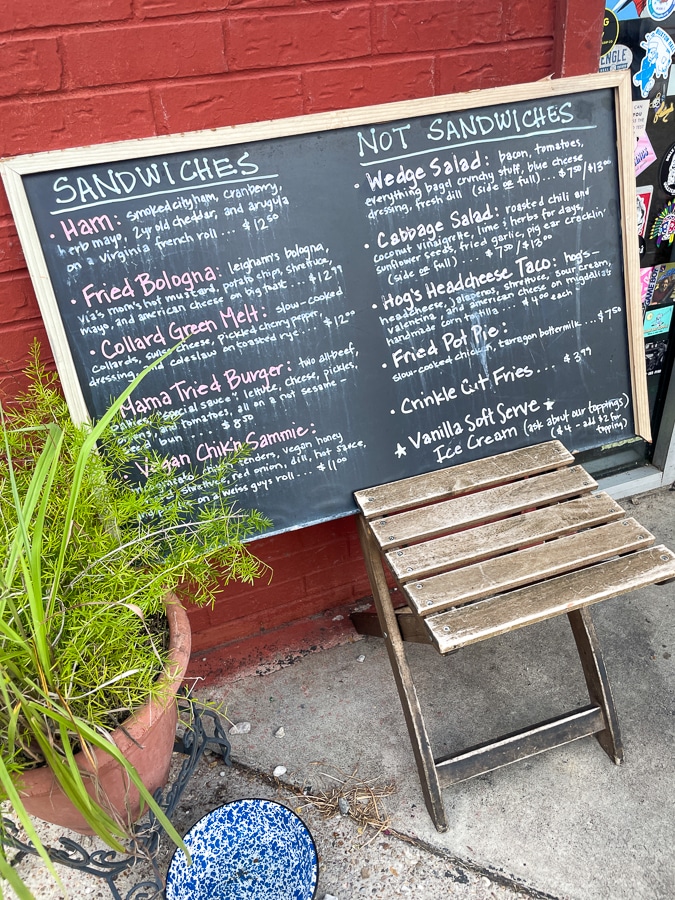 SANDWICHES
• Ham: smoked city ham, cranberry,
herb mayo, 2yr old cheddar, and arugula
on a virginia french roll ... $12.50
• Fried Bologna: leighann's bologna,
via's mom's hot mustard, potato chips, shrettuce,
mayo, and american cheese on big toast ... $12.99
• Collard Green Melt: slow-cooked
collards, swiss cheese, pickled cherry pepper,
dressing, and coleslaw on toasted rye ... $12.00
Mama Tried Burger: two all-beef
patties, "special sauce" lettuce, cheese, pickles,
onions, and tomatoes, all on a not sesame -
seed bun $8.50
• Vegan Chik'n Sammie:
tenders, vegan honey
shrettuce, red onion, dill, hot sauce,
on a weiss guys roll ... $11.00
NOT SANDWICHES
• Wedge Salad: bacon, tomatoes,
everything bagel crunchy stuff, blue cheese
dressing, fresh dill (side or full) ... $7.50/$13.00
• Cabbage Salad: roasted chili and
coconut vinaigrette, lime + herbs for days,
sunflower seeds, fried garlic, pig ear cracklin'
(side or full) ... $7.50/$13.00
• Hog's Headcheese Taco: hog's-
headcheese, jalapenos, shrettuce, sour cream,
valentina, and american cheese on migdalia's
handmade corn tortilla ... $4.00 each
• Fried Pot Pie:
slow-cooked chicken, tarragon buttermilk ... $7.50
• Crinkle Cut Fries ... $3.99
★ Vanilla Soft Serve ★
Ice Cream (ask about our toppings)
($4 - add $2 for
topping)